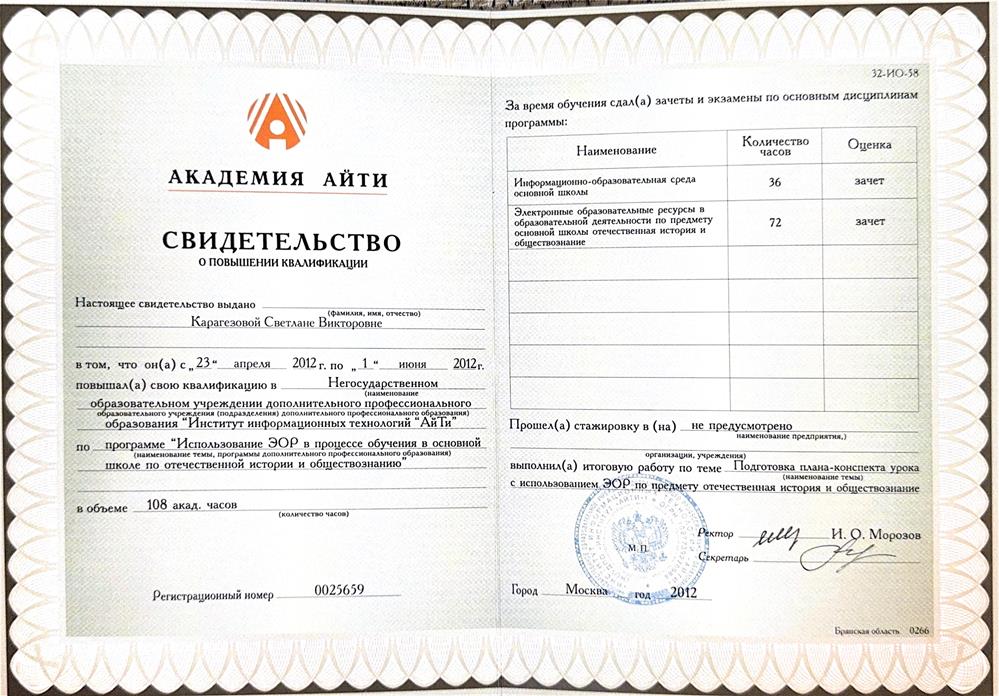 АКАДЕМИЯ АЙТИ
СВИДЕТЕЛЬСТВО
О ПОВЫШЕНИИ КВАЛИФИКАЦИИ
Настоящее свидетельство выдано
(фамилия, имя, отчество)
Карагезовой Светлане Викторовне
в том, что он(а) с „23“ апреля 2012 г. по „1“ июня 2012г.
повышал(а) свою квалификацию в Негосударственном
(наименование
образовательном учреждении дополнительного профессионального
образовательного учреждения (подразделения) дополнительного профессионального образования)
образования "Институт информационных технологий "АйТи"
по программе "Использование ЭОР в процессе обучения в основной
(наименование темы, программы дополнительного профессионального образования)
школе по отечественной истории и обществознанию"
в объеме 108 акад. часов
(количество часов)
Регистрационный номер 0025659
32-ИО-58
За время обучения сдал(а) зачеты и экзамены по основным дисциплинам
программы:
Наименование Количество часов Оценка
Информационно-образовательная среда
основной школы 36 зачет
Электронные образовательные ресурсы в
образовательной деятельности по предмету
основной школы отечественная история и
обществознание 72 зачет
Прошел(а) стажировку в (на) не предусмотрено
наименование предприятия,)
организации, учреждения)
выполнил(а) итоговую работу по теме Подготовка плана-конспекта урока
(наименование темы)
с использованием ЭОР по предмету отечественная история и обществознание
Ректор И. О. Морозов
М.П.
Секретарь
Город Москва год 2012
Брянская область 0266